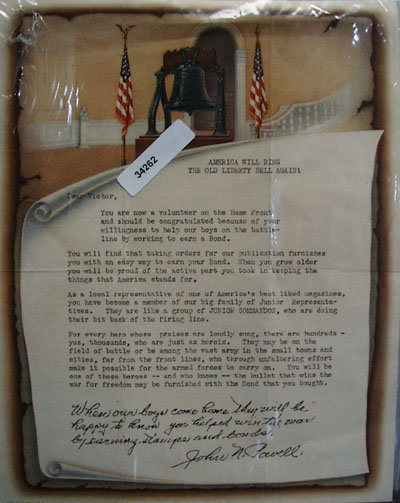 34262
AMERICA WILL RING
THE OLD LIBERTY BELL AGAIN!
Dear Victor,
You are now a volunteer on the Home Front
and should be congratulated because of your
willingness to help our boys on the battle-
line by working to earn a Bond.
You will find that taking orders for our publication furnishes
you with an easy way to earn your Bond. When you grow older
you will be proud of the active part you took in keeping the
things that America stands for.
As a local representative of one of America's best liked magazines,
you have become a member of our big family of Junior Representa-
tives. They are like a group of JUNIOR COMMANDOS, who are doing
their bit back of the firing line.
For every hero whose praises are loudly sung, there are hundreds -
yes, thousands, who are just as heroic. They may be on the
field of battle or be among the vast army in the small towns and
cities, far from the front lines, who through unfaltering effort
make it possible for the armed forces to carry on. You will be
one of these heroes -- and who knows -- the bullet that wins the
war for freedom may be furnished with the Bond that you bought.
When our boys come home they will be
happy to know you helped win the war
by earning stamps and bonds.
John N. Powell.